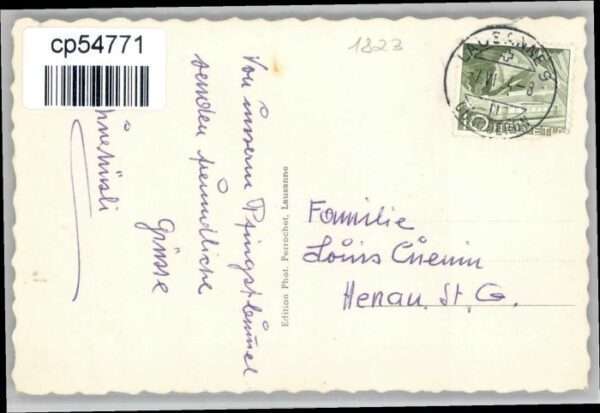 cp54771
1823
LAUSANNE
HELVETIA
Von unserm Pfingstbummel
senden freundliche
Grüsse
Edition Phot. Perrochet, Lausanne
Familie
Louis Cuenin
Henau. St. G.